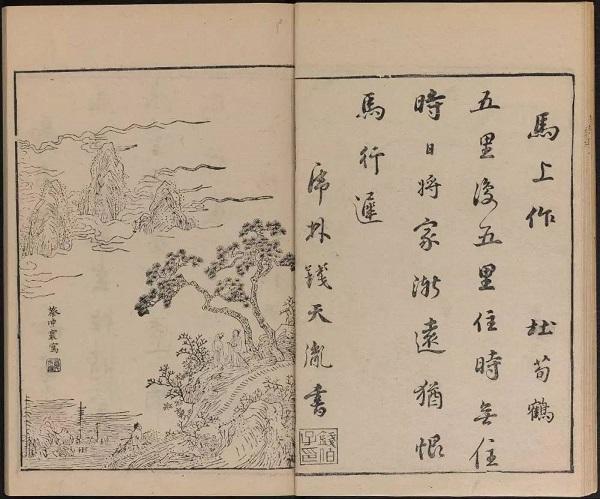 馬上作 杜荀鶴
五里復五里住時無住
時日將家漸遠猶恨
馬行遲
虎林錢天胤書
蔡冲寰寫